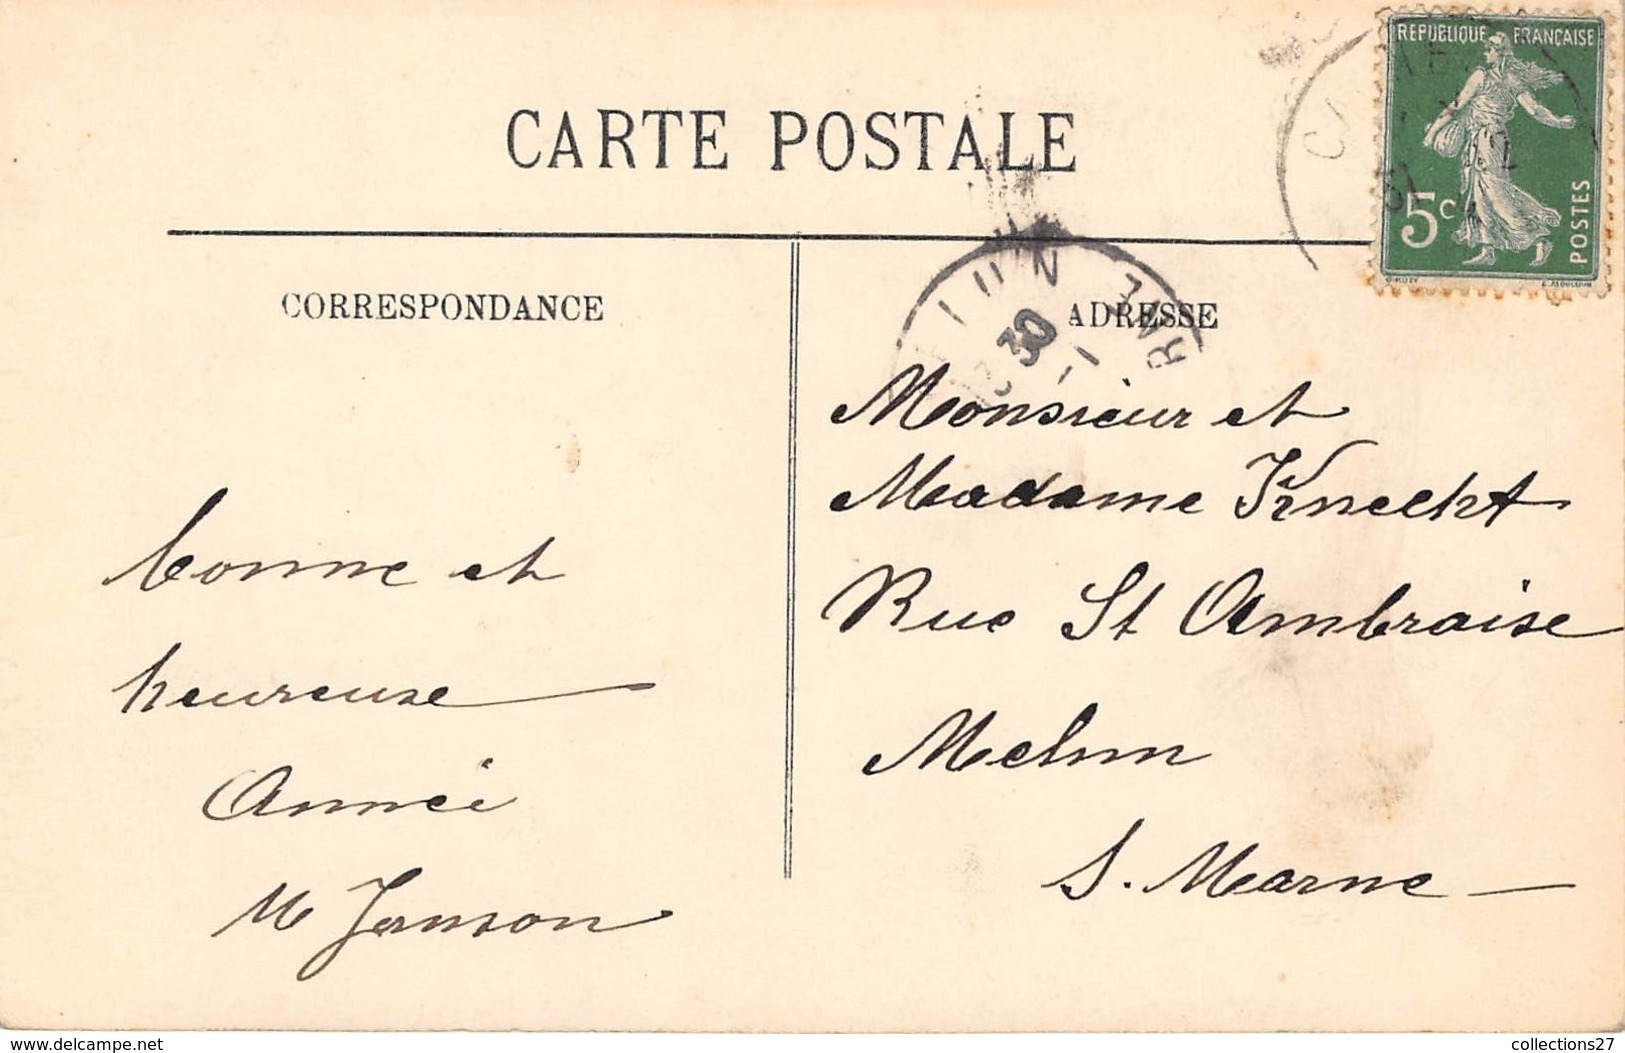 RÉPUBLIQUE FRANÇAISE
5c
POSTES
CARTE POSTALE
CORRESPONDANCE
ADRESSE
30
bonne et
heureuse
Année
M Janson
Monsieur et
Madame Knecht
Rue St Ambraise
Melun
S. Marne
delcampe.net
collections27